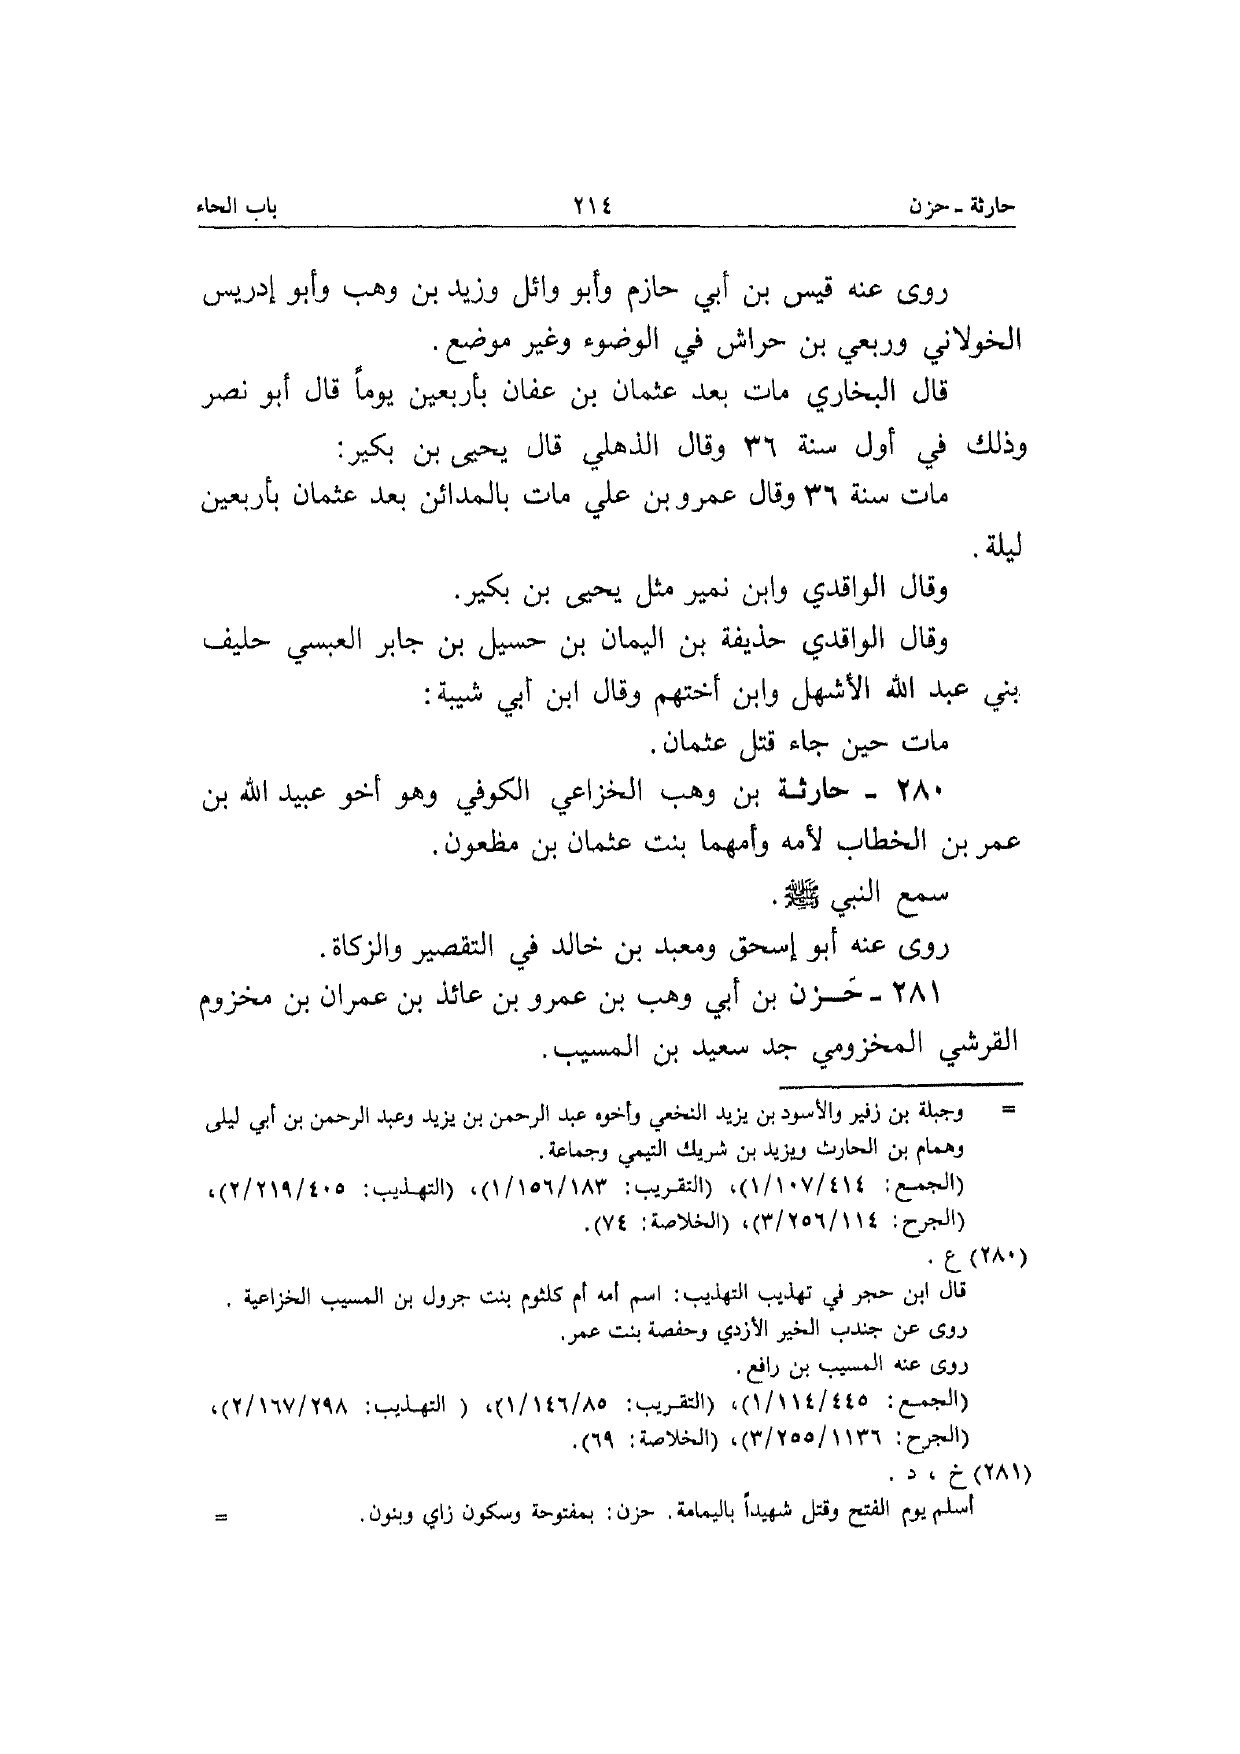 حارثة ـ حزن ٢١٤ باب الحاء
روى عنه قيس بن أبي حازم وأبو وائل وزيد بن وهب وأبو إدريس
الخولاني وربعي بن حراش في الوضوء وغير موضع.
قال البخاري مات بعد عثمان بن عفان بأربعين يوماً قال أبو نصر
وذلك في أول سنة ٣٦ وقال الذهلي قال يحيى بن بكير:
مات سنة ٣٦ وقال عمرو بن علي مات بالمدائن بعد عثمان بأربعين
ليلة.
وقال الواقدي وابن نمير مثل يحيى بن بكير.
وقال الواقدي حذيفة بن اليمان بن حسيل بن جابر العبسي حليف
بني عبد الله الأشهل وابن أختهم وقال ابن أبي شيبة:
مات حين جاء قتل عثمان.
٢٨٠ ـ حارثة بن وهب الخزاعي الكوفي وهو أخو عبيد الله بن
عمر بن الخطاب لأمه وأمهما بنت عثمان بن مظعون.
سمع النبي ﷺ.
روى عنه أبو إسحق ومعبد بن خالد في التقصير والزكاة.
٢٨١ ـ حَزن بن أبي وهب بن عمرو بن عائذ بن عمران بن مخزوم
القرشي المخزومي جد سعيد بن المسيب.
= وجبلة بن زفير والأسود بن يزيد النخعي وأخوه عبد الرحمن بن يزيد وعبد الرحمن بن أبي ليلى
وهمام بن الحارث ويزيد بن شريك التيمي وجماعة.
(الجمع: ١/١٠٧/٤١٤)، (التقريب: ١/١٥٦/١٨٣)، (التهذيب: ٢/٢١٩/٤٠٥)،
(الجرح: ٣/٢٥٦/١١٤)، (الخلاصة: ٧٤).
(٢٨٠) ع.
قال ابن حجر في تهذيب التهذيب: اسم أمه أم كلثوم بنت جرول بن المسيب الخزاعية.
روى عن جندب الخير الأزدي وحفصة بنت عمر.
روى عنه المسيب بن رافع.
(الجمع: ١/١١٤/٤٤٥)، (التقريب: ١/١٤٦/٨٥)، ( التهذيب: ٢/١٦٧/٢٩٨)،
(الجرح: ٣/٢٥٥/١١٣٦)، (الخلاصة: ٦٩).
(٢٨١) خ ، د .
أسلم يوم الفتح وقتل شهيداً باليمامة. حزن: بمفتوحة وسكون زاي وبنون. =